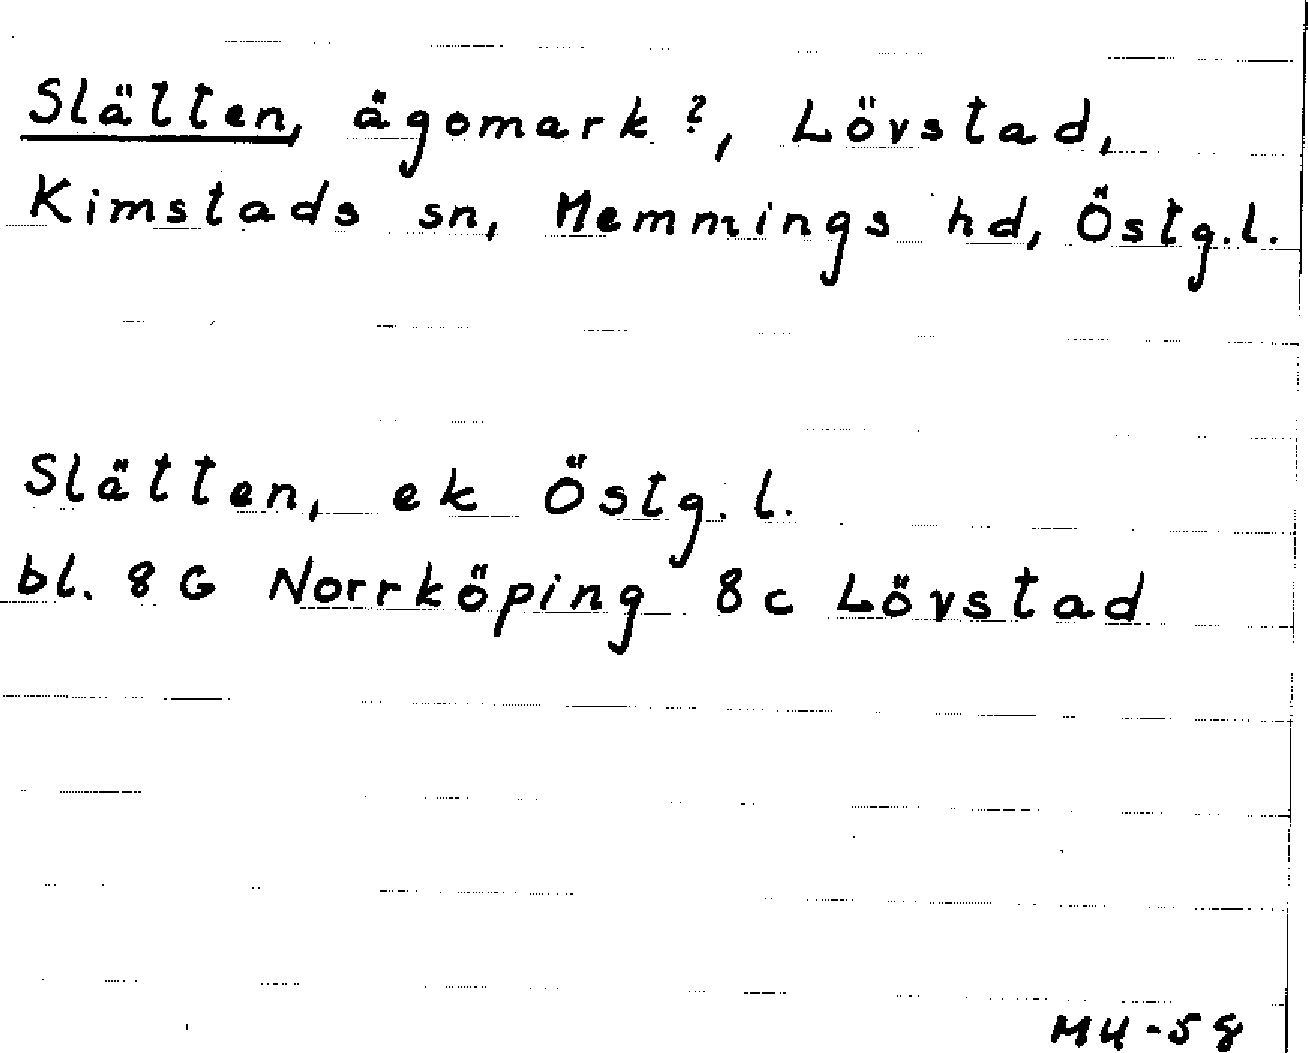 Slätten, ägomark?, Lövstad,
Kimstads sn, Memmings hd, Östg.l.
Slätten, ek Östg.l.
bl. 8 G Norrköping 8c Lövstad
MH-58